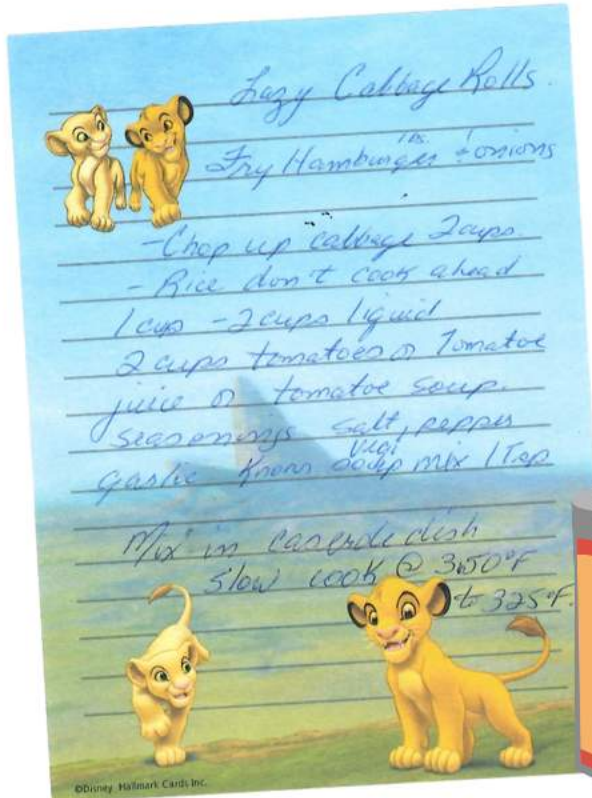 Lazy Cabbage Rolls.
lbs.
Fry Hamburger + onions
-Chop up cabbage 2 cups.
- Rice don't cook ahead
1 cup - 2 cups liquid
2 cups tomatoes or Tomatoe
juice or tomatoe soup.
Seasonings salt, pepper
vegi
garlic Knorr soup mix 1 Tsp
Mix in caserole dish
slow cook @ 350°F
to 325°F.
©Disney Hallmark Cards Inc.